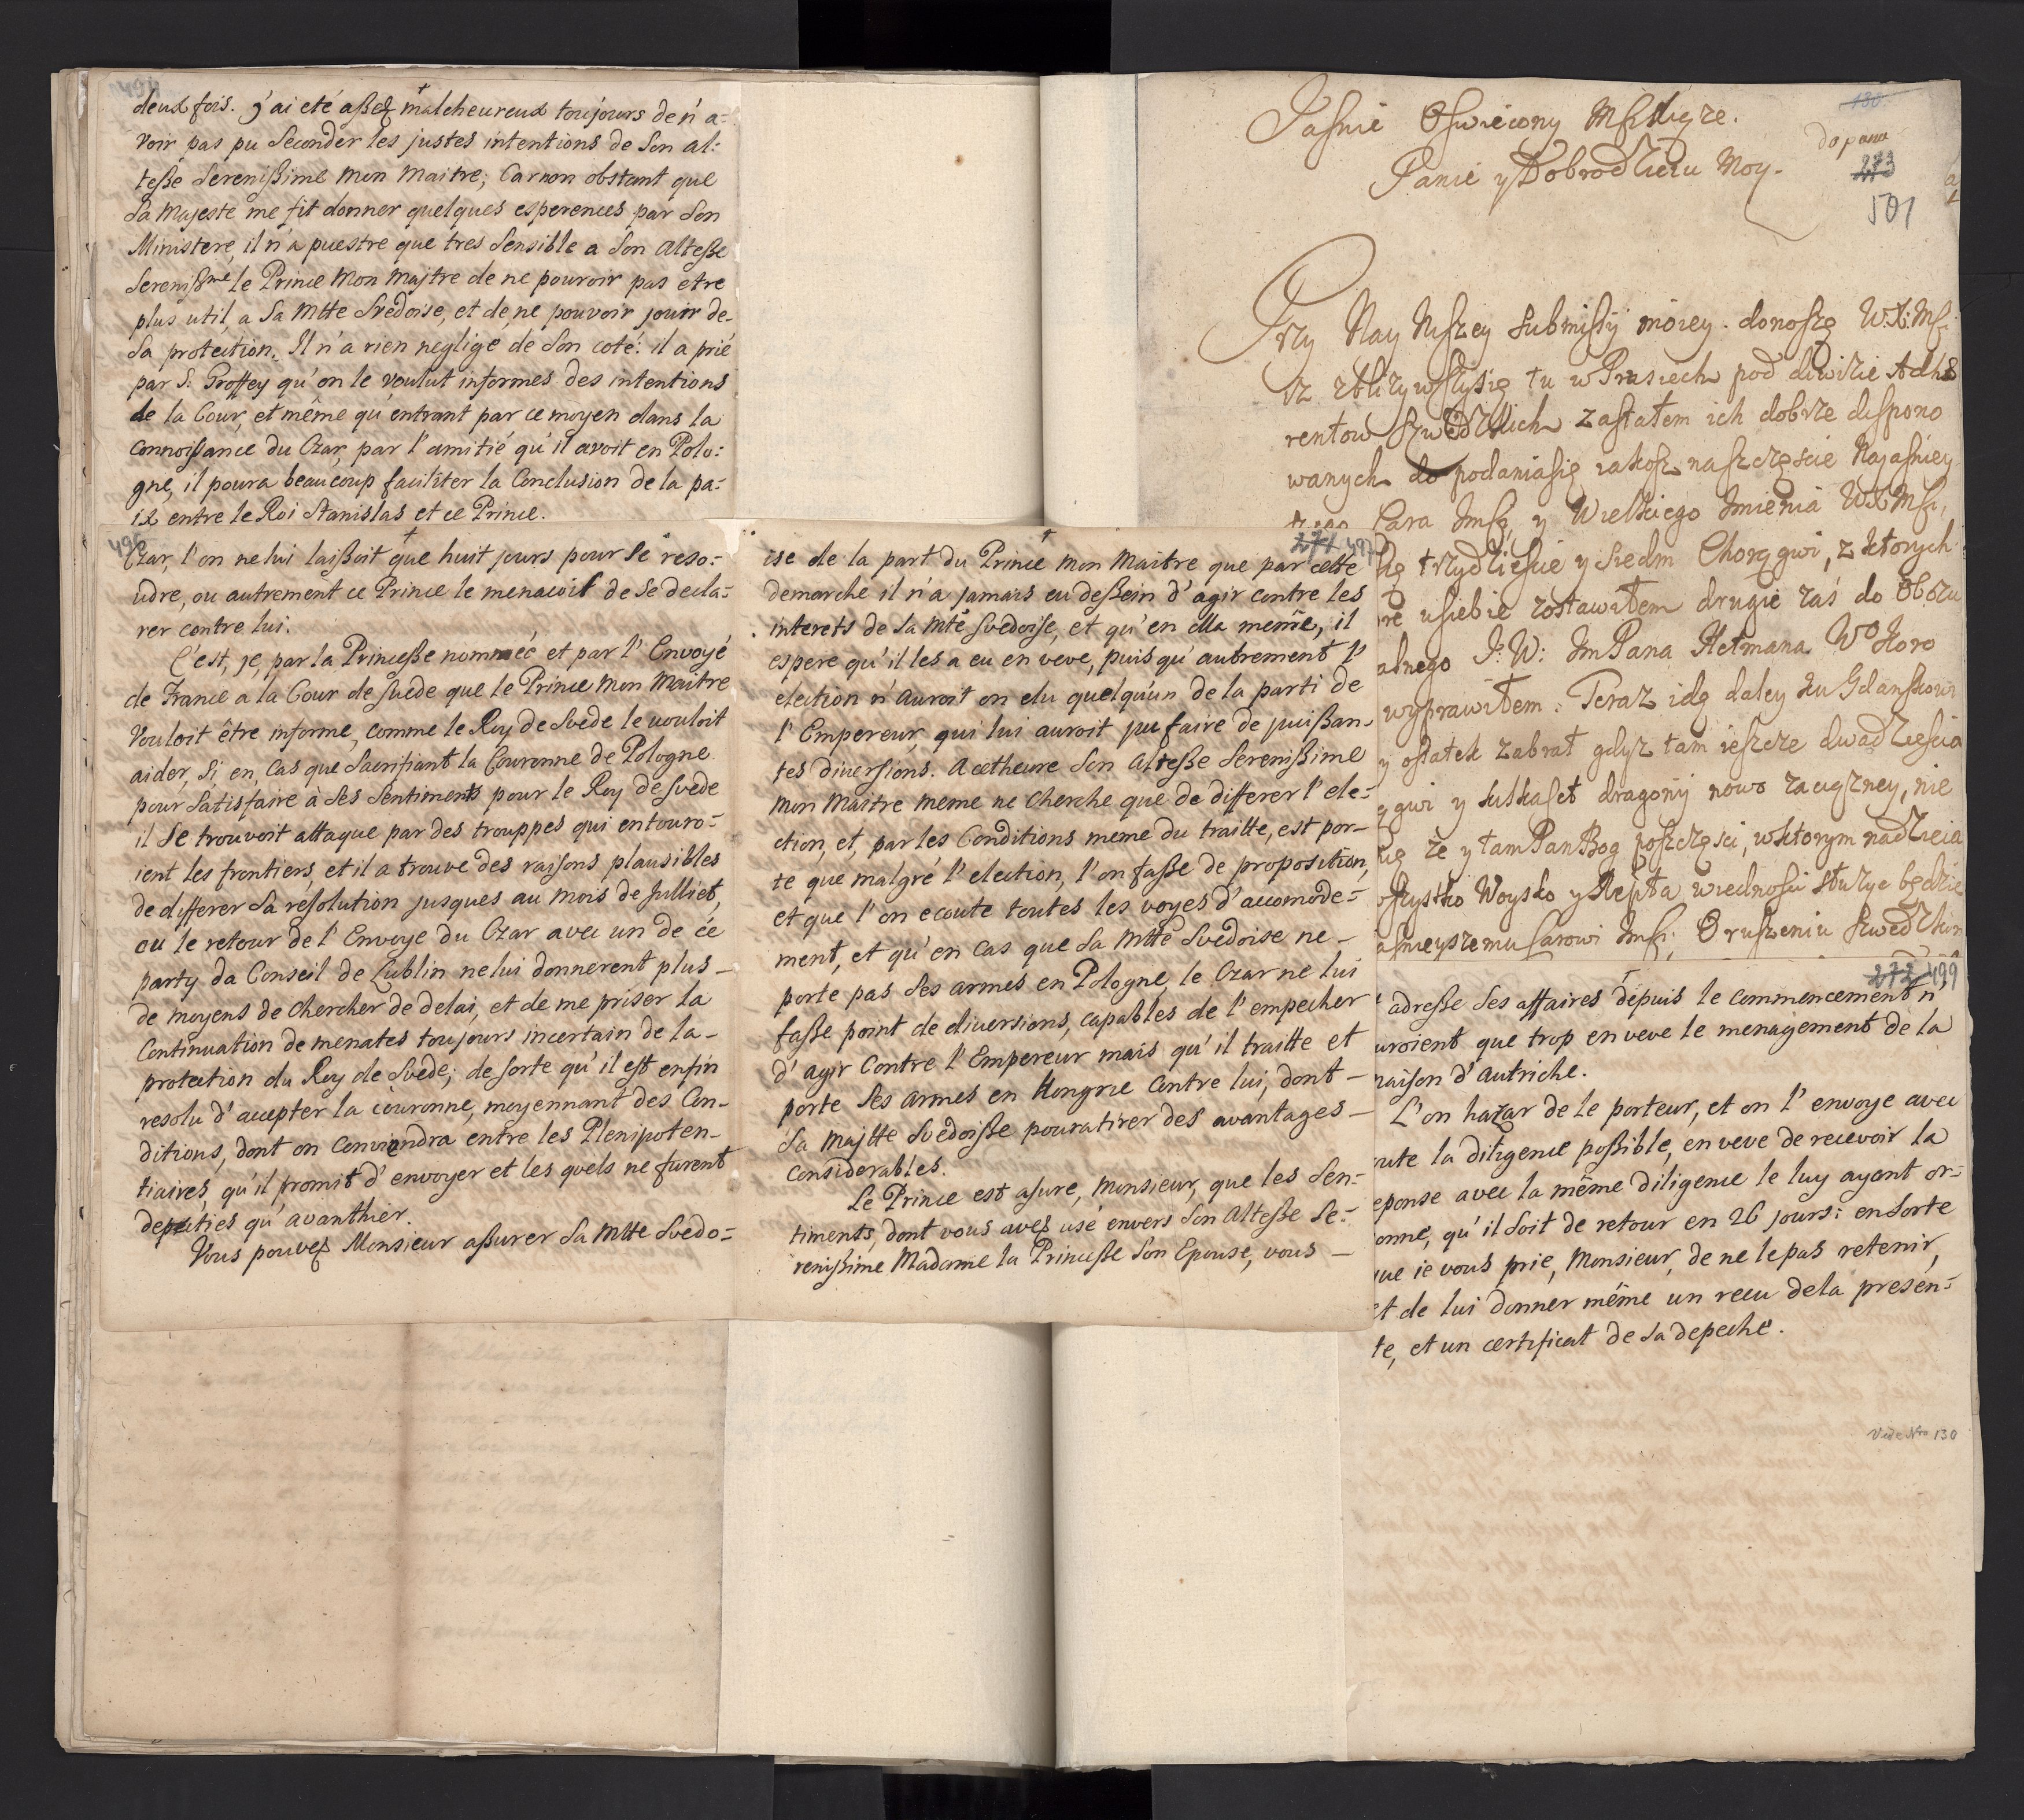 deux fois. j'ai eté assez malcheureux toujours de n'a-
voir pas pu Seconder les justes intentions de Son al:
tesse Serenissime mon maitre; Car non obstant que
Sa Majesté me fit donner quelques esperences par Son
Ministere, il n'a pu estre que tres Sensible a Son Altesse
Sereniss.me le Prince Mon Majtre de ne pouvoir pas etre
plus util, a Sa Mtte Svedoise, et de ne pouvoir jouir de-
Sa protection. Il n'a rien neglige de Son coté: il a prié
par S: Proffey qu'on le voulut informes des intentions
de la Cour, et même qu'entrant par ce moyen dans la
connoissance du Czar, par l'amitié qu'il avoit en Polo:
gne, il poura beaucoup faciliter la Conclusion de la pa:
ix entre le Roi Stanislas et ce Prince.
496
Czar, l'on ne lui laissoit que huit jours pour Se reso:
udre, ou autrement ce Prince le menacoit de Se decla:
rer contre lui.
C'est, je, par la Princesse nommée et par l'Envoyé
de France a la Cour de Suede que le Prince Mon Maitre
Vouloit être informe, comme le Roy de Svede le vouloit
aider, Si en Cas que Sacrifiant la Couronne de Pologne
pour Satisfaire à Ses Sentiments pour le Roy de Svede
il Se trouvoit attaque par des trouppes qui entouro:
ient les frontiers, et il a trouve des raisons plausibles
de differer Sa resolution jusques au mois de Julliet,
ou le retour de l'Envoye du Czar avec un de cé
party da Conseil de Lublin ne lui donnerent plus-
de moyens de Chercher de delai, et de me priser la
Continuation de menates toujours incertain de la-
protection du Roy de Svede; de Sorte qu'il est enfin
resolu d'accepter la couronne, moyennant des Con-
ditions, dont on conviendra entre les Plenipoten-
tiaires, qu'il promit d'envoyer et les quels ne furent
deputies qu'avanthier.
Vous pouvez Monsieur assurer Sa Mtte Svedo=
271 497
ise de la part du Prince Mon Maitre que par cette
demarche il n'a jamais eu dessein d'agir contre les
interets de Sa Mté Svedoise, et qu'en ella meme, il
espere qu'il les a eu en veve, puis qu'autrement l'
election n'auroit on elu quelqu'un de la parti de
l'Empereur, qui lui auroit pu faire de puissan-
tes diversions. Acetheure Son Altesse Serenissime
Mon Maitre meme ne Cherche que de differer l'ele:
ction, et, par les Conditions meme du traitte, est por-
te que malgré l'election, l'on fasse de proposition,
et que l'on ecoute toutes les voyes d'accomode=
ment, et qu'en cas que Sa Mtté Svedoise ne-
porte pas Ses armes en Pologne, le Czar ne lui
fasse point de diversions, capables de l'empecher
d'agir Contre l'Empereur mais qu'il traitte et
porte Ses armes en Hongrie contre lui, dont-
Sa Majtte Svedoisse poura tirer des avantages-
considerables.
Le Prince est asure, Monsieur, que les Sen:
timents, dont vous avez usé envers Son Altesse Se:
renissime Madame la Princesse Son Epouse, vous-
130
do pana
273
501
Jasnie Oswiecony Msci Xiąze.
Panie y Dobrodzieiu Moy.
Przy Nay Niszey Submissyi moiey. donoszę W.X.Mści
iz zbliżywszysię tu w Prusiech pod diwizie Adhe
rentow Szwedzkich zastałem ich dobrze dispono
wanych do podaniasię iakosz naszczęscie Najasniey
Cara Jmści y Wielkiego Imienia WXMści,
trzydziescie y siedm Chorągwi, z ktorych
re usiebie zostawiłem drugie zaś do Obozu
alnego J:W: Jm Pana Hetmana Wo Koro
wyprawiłem: Teraz idę daley ku Gdanskowi
y ostatek zabrał gdysz tam ieszcze dwadziescia
ągwi y kilkaset dragonij nowo zaciężney, nie
ię ze y tam Pan Bog poszczęsci, wktorym nadzieia
wszystko Woysko y Rzepta wiednosci słuzyc będzie
asnieyszemu Carowi Jmści; O ruszeniu Szwedzkim
272 499
adresse Ses affaires depuis le commencement n'
auroient que trop en veve le menagement de la
maison d'Autriche.
L'on hazar de le porteur, et on l'envoye avec
oute la diligence possible, en veve de recevoir la
reponse avec la même diligence le luy ayant or:
onne, qu'il soit de retour en 26 jours: en Sorte
que ie vous prie, Monsieur, de ne le pas retenir,
et de lui donner même un recu de la presen:
te, et un certificat de Sa depeche.
Vide Nro 130